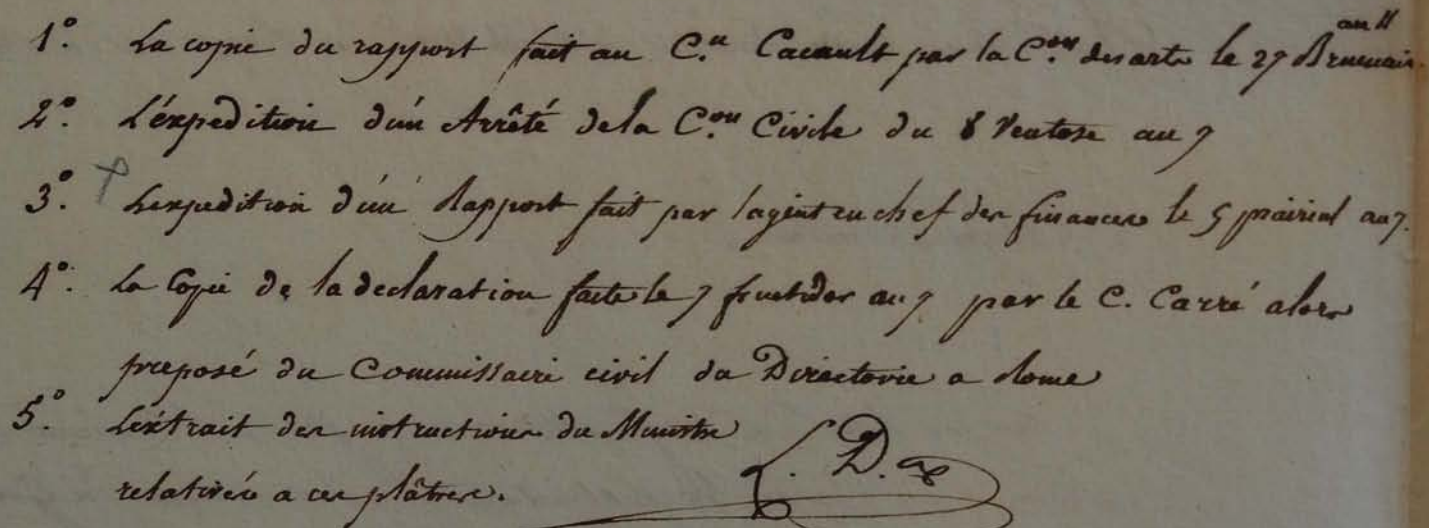 1°. La copie du rapport fait au C.en Cacault par la C.on des arts le 27 Brumair. an 11
2°. L'éxpedition d'un Arrêté de la C.on Civile du 8 Ventose an 7
3°. L'expedition d'un Rapport fait par l'agent en chef des finances le 5 prairial an 7.
4°. La Copie de la declaration faite le 7 fructidor an 7 par le C. Carré alors
preposé du Commissaire civil du Directoire a Rome
5°. L'éxtrait des instructions du Ministre
relatives a ces plâtres.
L. D.